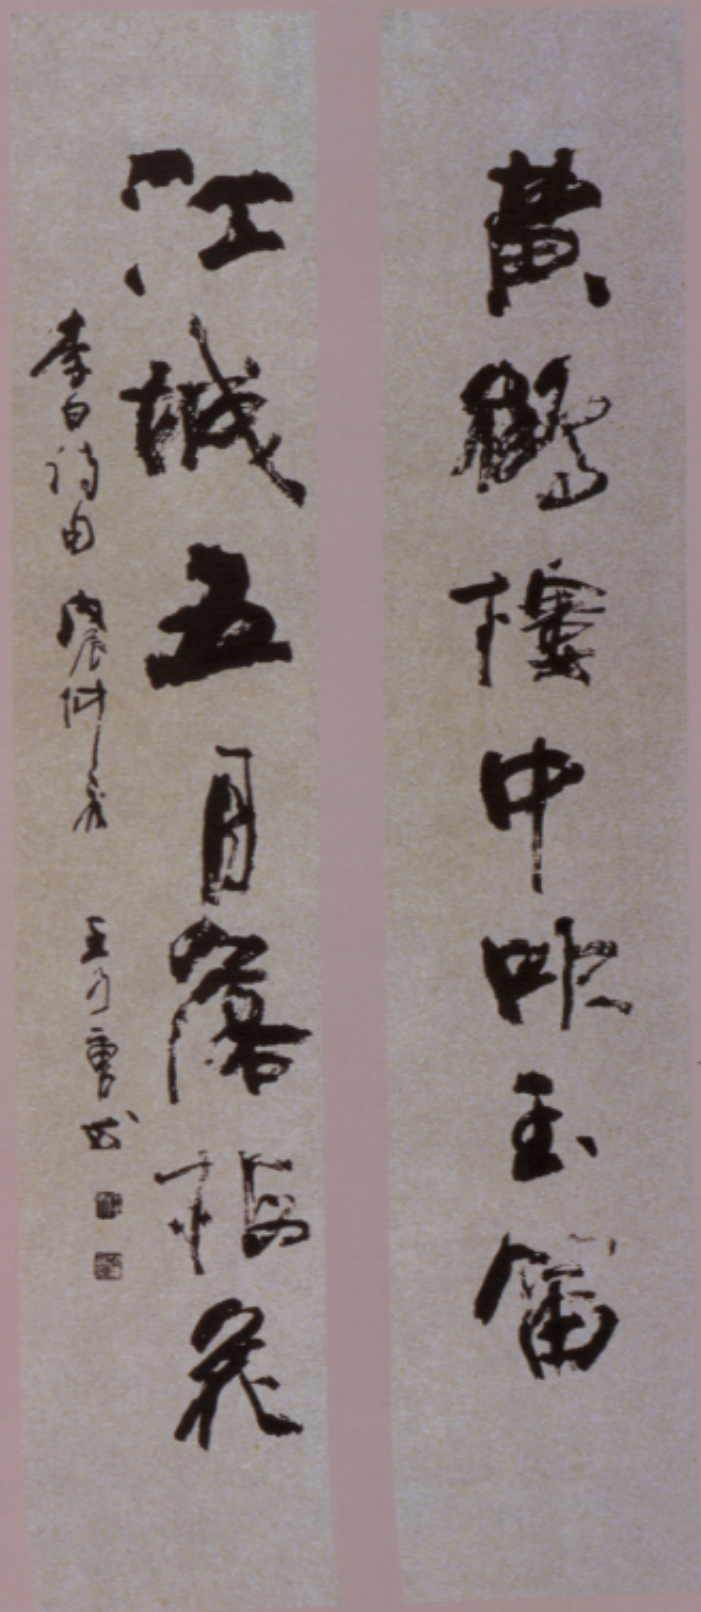 黄鶴樓中吹玉笛
江城五月落梅花
李白詩句 丙辰仲冬 王乃